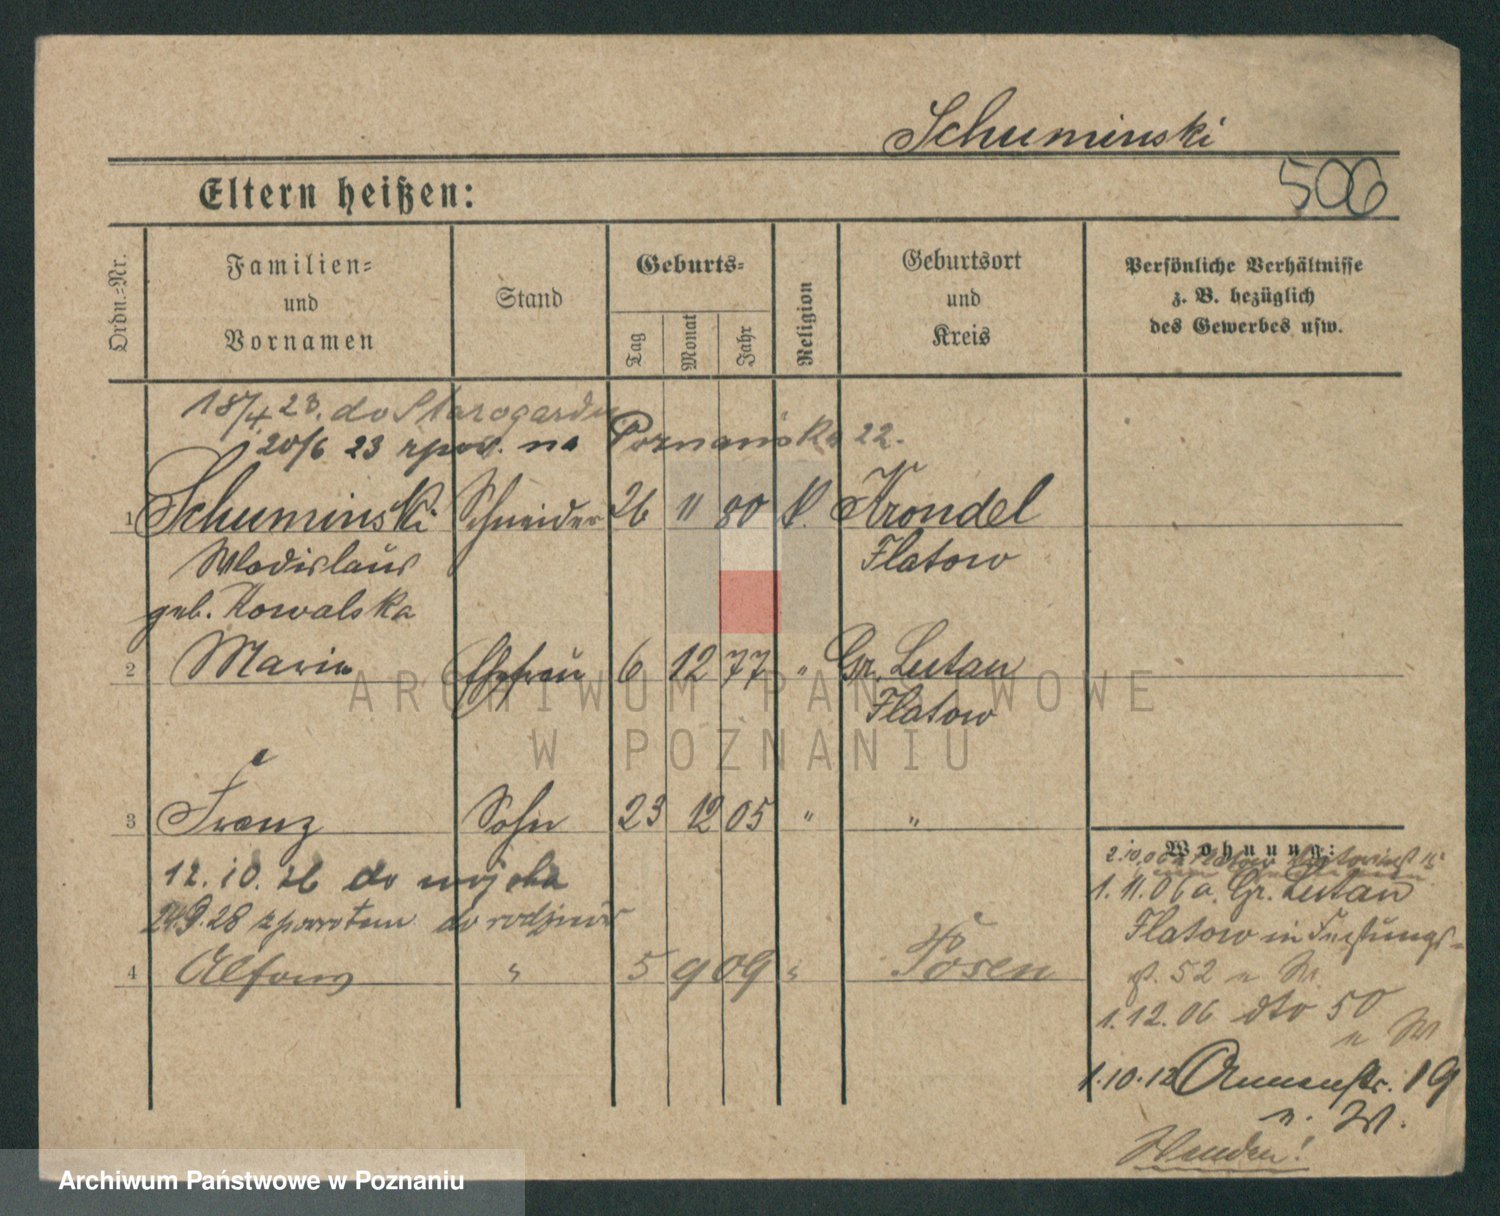 Schuminski
506
Eltern heißen:
Ordn.-Nr.
Familien-
und
Vornamen
Stand
Geburts-
Tag
Monat
Jahr
Religion
Geburtsort
und
Kreis
Persönliche Verhältnisse
z. B. bezüglich
des Gewerbes usw.
18/4 23. do Starogardu
20/6 23 zpow. na Poznańska 22.
1 Schuminski Schneider 26 11 80 k. Krondel
Wladislaus Flatow
geb. Kowalska
2 Marie Ehefrau 6 12 77 " Gr. Lutau
Flatow
3 Franz Sohn 23 12 05 " "
12.10.26 do wojska
24.9.28 z powrotem do rodziców
4 Alfons " 5 9 09 " Posen
Wohnung:
2.10.06 a Flatow
1.11.06 a. Gr. Lutau
Flatow in Festungs-
st. 52 n W
1.12.06 dto 50
n W
1.10.12 Annenstr. 19
n. W.
ARCHIWUM PAŃSTWOWE
W POZNANIU
Archiwum Państwowe w Poznaniu